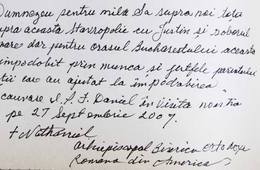 Dumnezeu pentru mila Sa supra noi toți
supra aceasta Stavropolie cu Justin și soborul
mare dar pentru orasul Bucurestului aceasta
impodobit prin munca si jertfele parintelui
tii cae au ajutat la impodobirea
I.P.F. Daniel in vizita noastra
pe 27 Septembrie 2007.
+ Nathaniel
Arhiepiscopal Biserica Ortodoxa
Romana din America